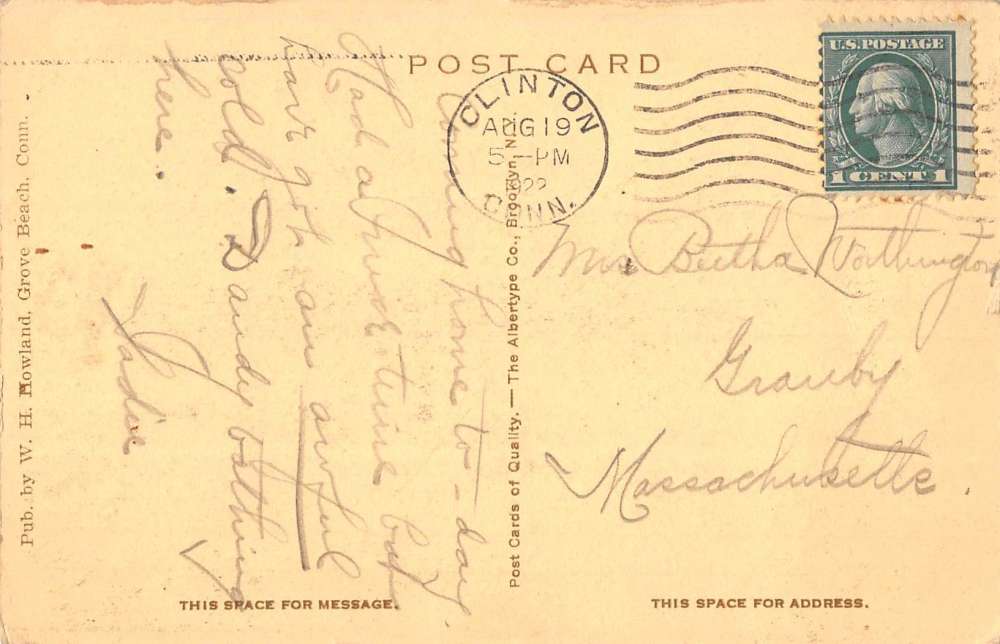 POST CARD
CLINTON
AUG 19
5 - PM
1922
CONN.
U.S. POSTAGE
1 CENT 1
Coming home to-day.
Had a fine time but
have got an awful
cold. Dandy bathing
here.
Sadie
Mrs Bertha Worthington
Granby
Massachusetts.
Pub. by W. H. Howland, Grove Beach, Conn.
Post Cards of Quality. — The Albertype Co., Brooklyn, N.Y.
THIS SPACE FOR MESSAGE.
THIS SPACE FOR ADDRESS.